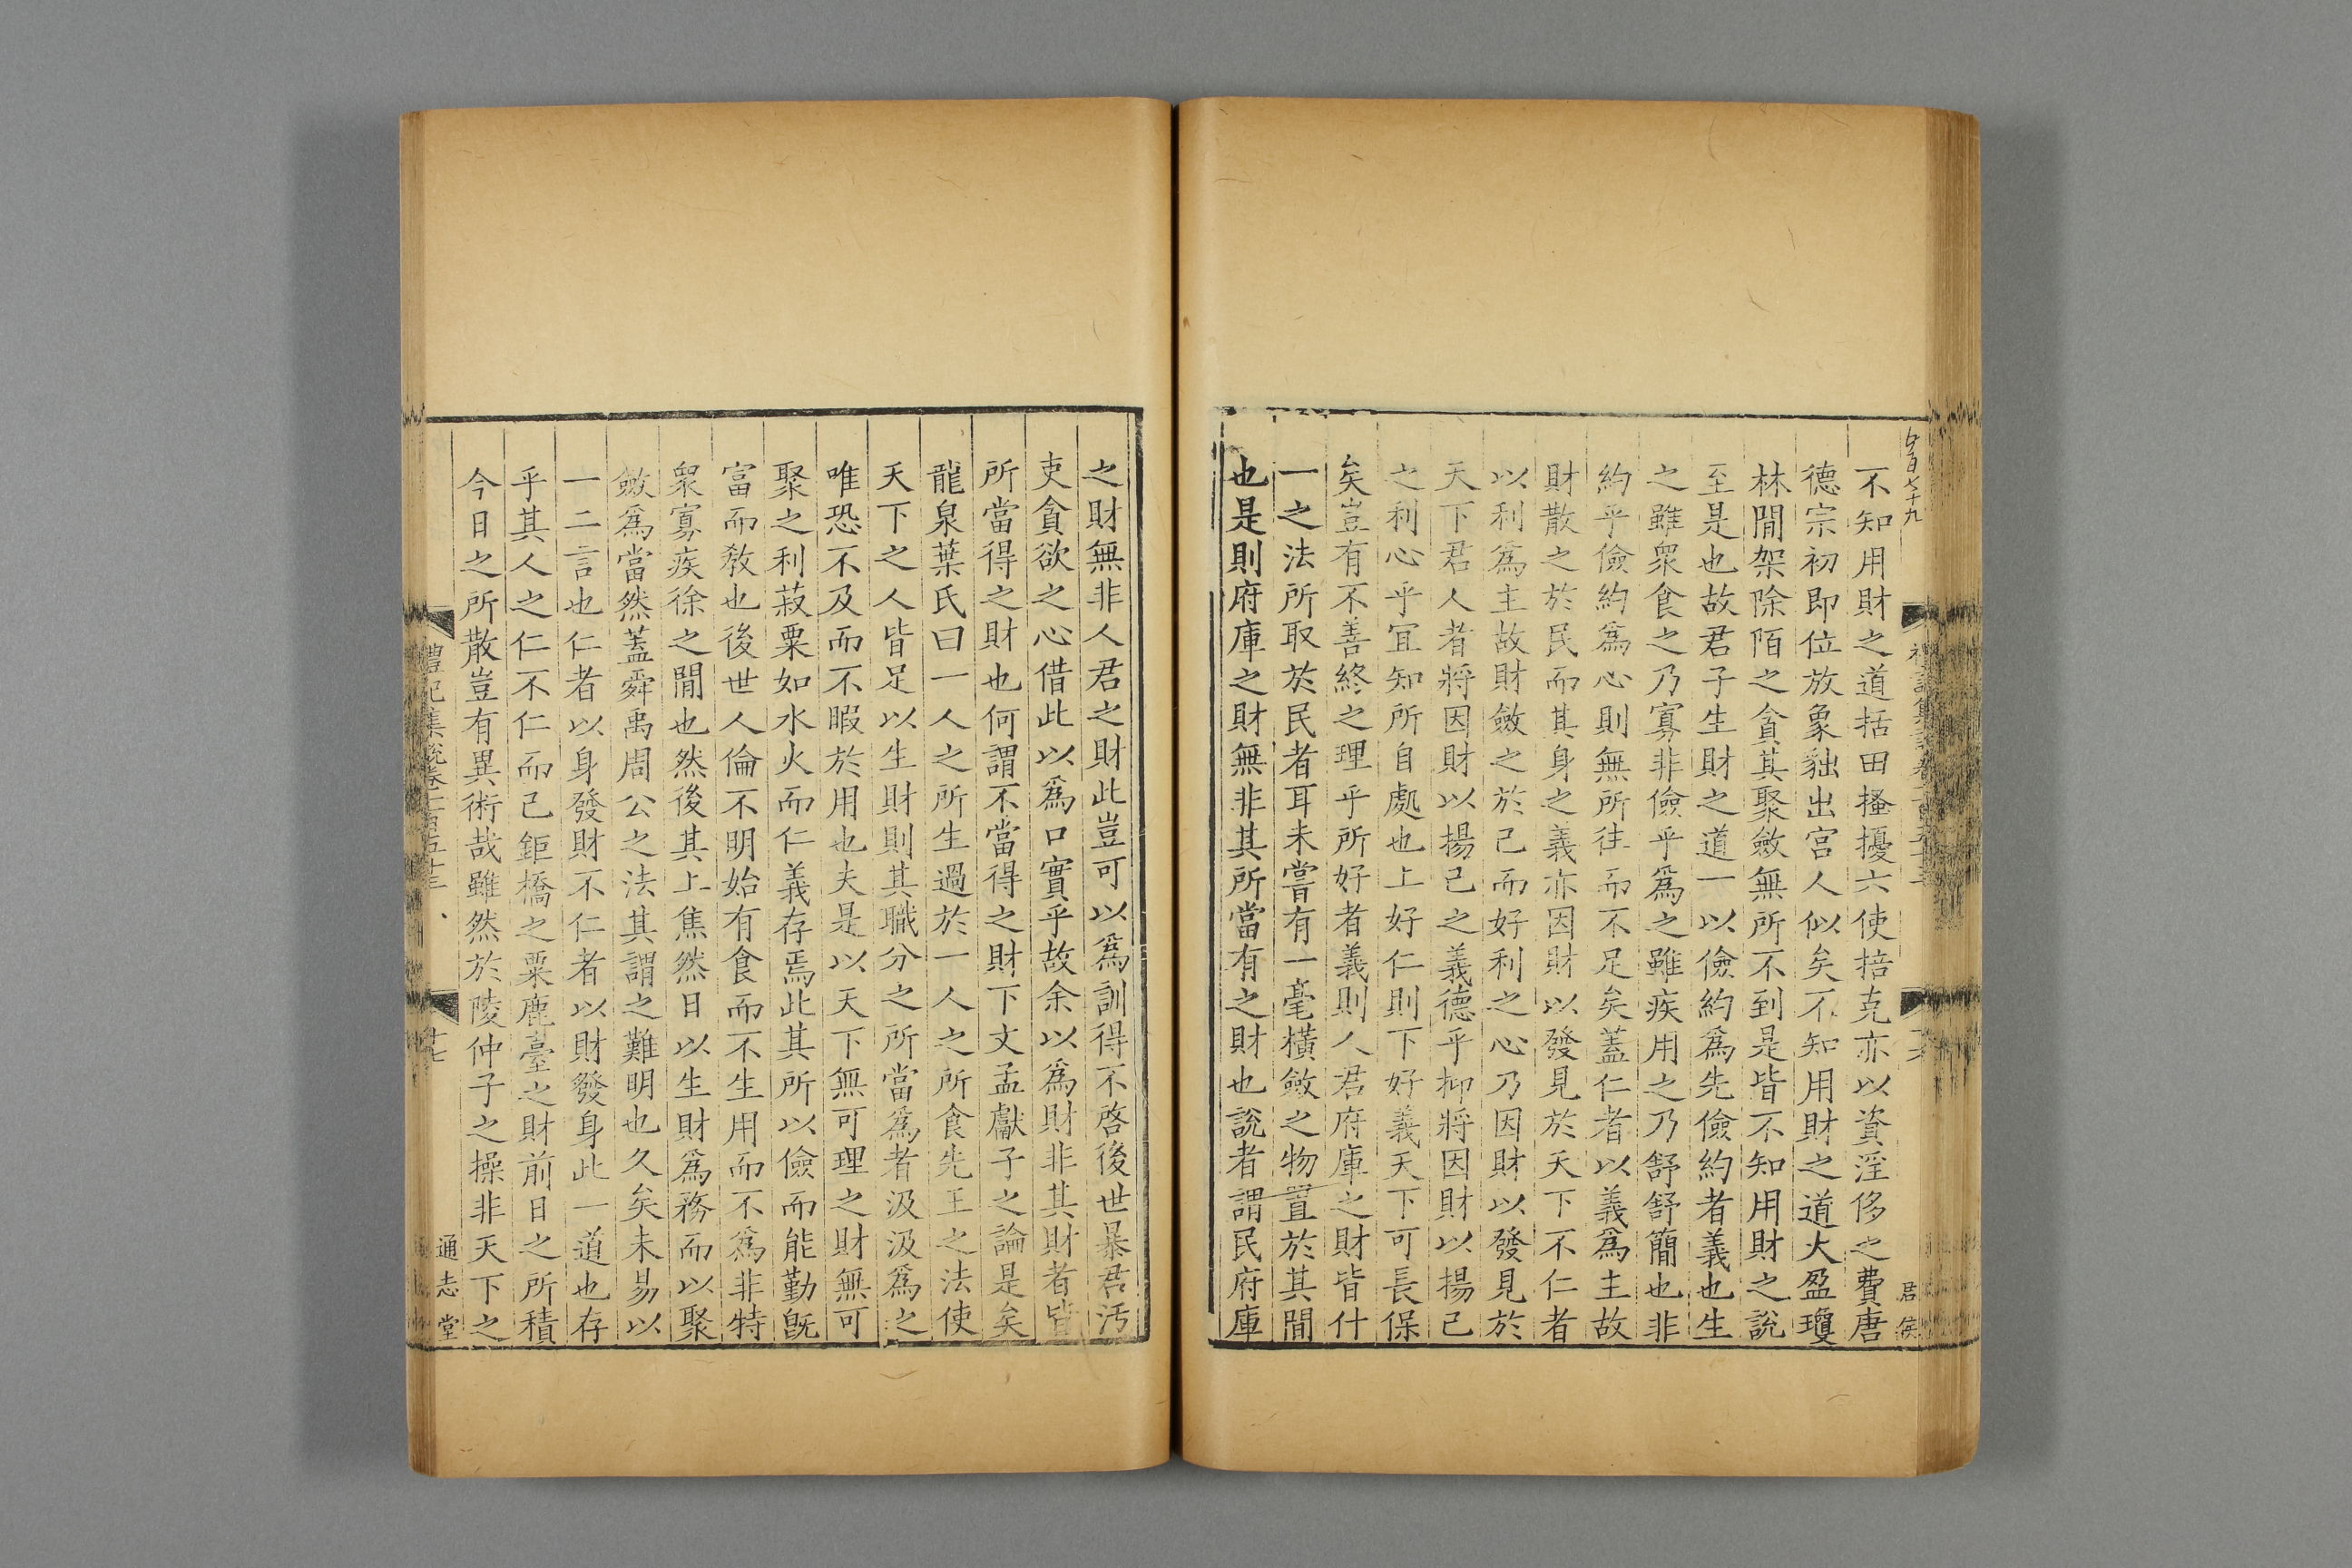 不知用財之道括田搔擾六使掊克亦以資淫侈之費唐
德宗初即位放象豽出宮人似矣不知用財之道大盈瓊
林間架除陌之貪其聚斂無所不到是皆不知用財之說
至是也故君子生財之道一以儉約爲先儉約者義也生
之雖衆食之乃寡非儉乎爲之雖疾用之乃舒舒簡也非
約乎儉約爲心則無所往而不足矣蓋仁者以義爲主故
財散之於民而其身之義亦因財以發見於天下不仁者
以利爲主故財斂之於己而好利之心乃因財以發見於
天下君人者將因財以揚己之義德乎抑將因財以揚己
之利心乎宜知所自處也上好仁則下好義天下可長保
矣豈有不善終之理乎所好者義則人君府庫之財皆什
一之法所取於民者耳未嘗有一毫橫斂之物置於其間
也是則府庫之財無非其所當有之財也說者謂民府庫
之財無非人君之財此豈可以爲訓得不啓後世暴君汚
吏貪欲之心借此以爲口實乎故余以爲財非其財者皆
所當得之財也何謂不當得之財下文孟獻子之論是矣
龍泉葉氏曰一人之所生過於一人之所食先王之法使
天下之人皆足以生財則其職分之所當爲者汲汲爲之
唯恐不及而不暇於用也夫是以天下無可理之財無可
聚之利菽粟如水火而仁義存焉此其所以儉而能勤旣
富而敎也後世人倫不明始有食而不生用而不爲非特
衆寡疾徐之間也然後其上焦然日以生財爲務而以聚
斂爲當然蓋舜禹周公之法其謂之難明也久矣未易以
一二言也仁者以身發財不仁者以財發身此一道也存
乎其人之仁不仁而已鉅橋之粟鹿臺之財前日之所積
今日之所散豈有異術哉雖然於陵仲子之操非天下之
禮記集說卷一百五十三
十七
通志堂